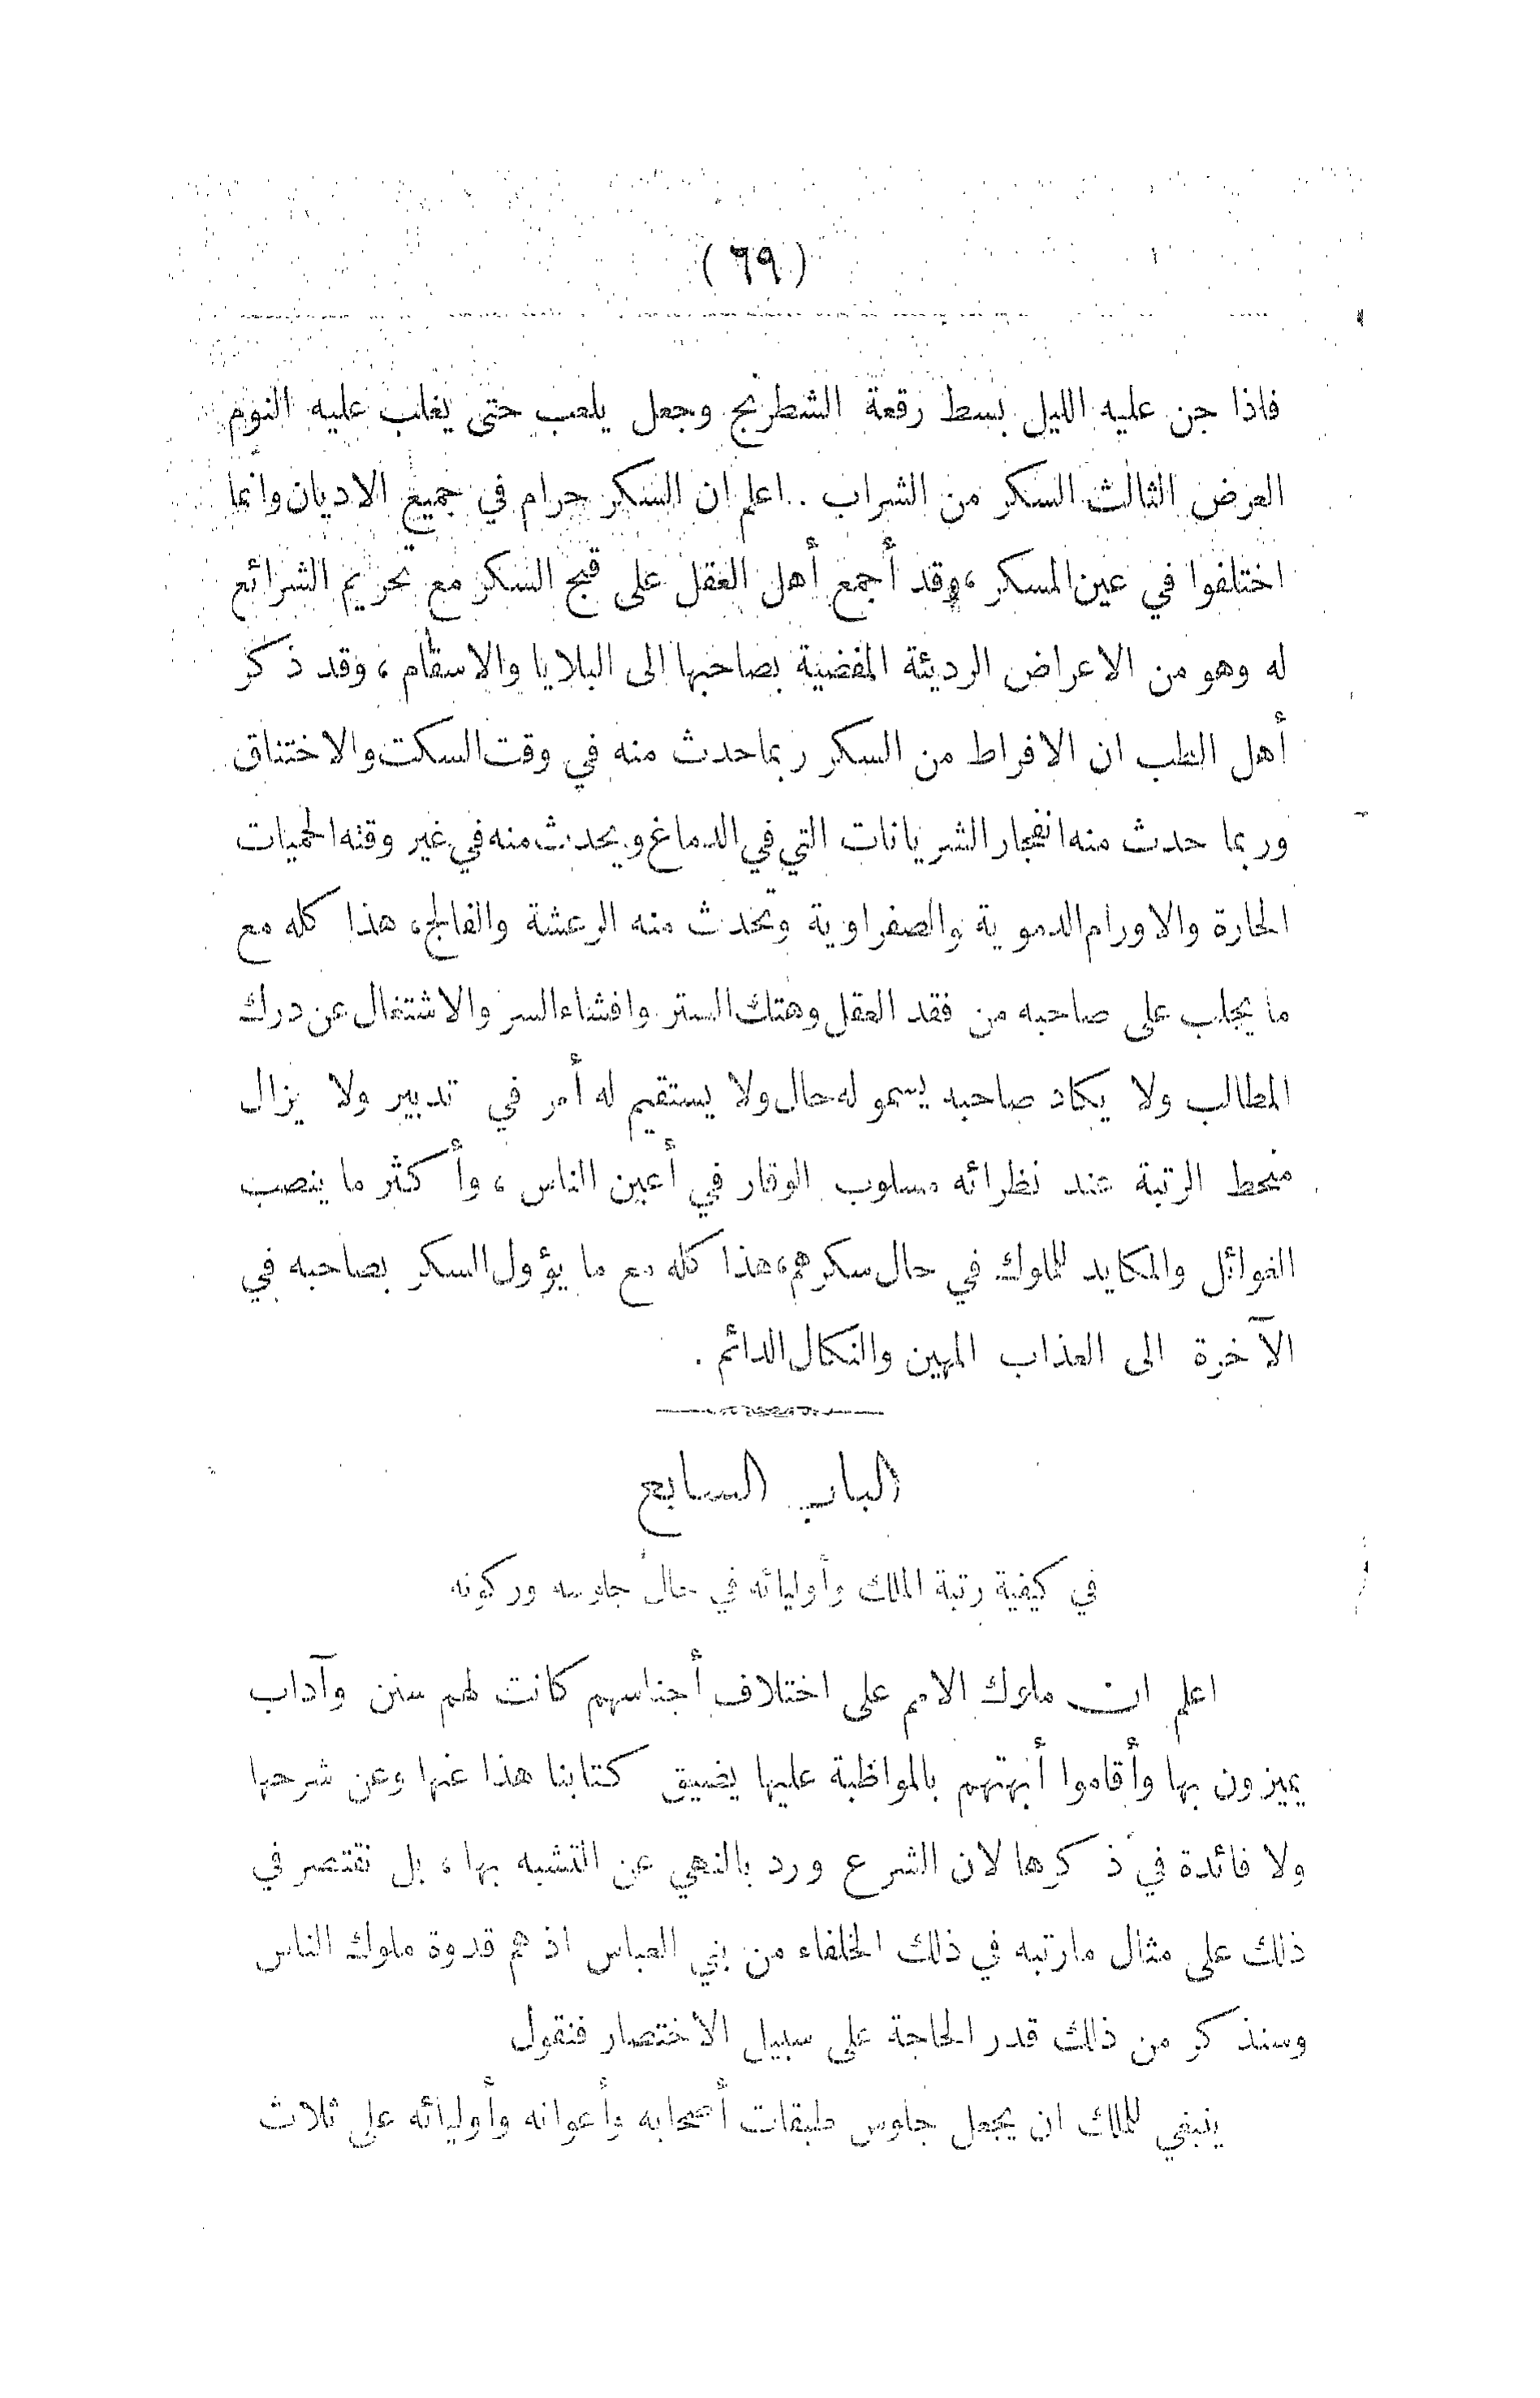 (٦٩)
فاذا جن عليه الليل بسط رقعة الشطرنج وجعل يلعب حتى يغلب عليه النوم
العرض الثالث السكر من الشراب .. اعلم ان السكر حرام في جميع الاديان وانما
اختلفوا في عين المسكر ، وقد أجمع أهل العقل على قبح السكر مع تحريم الشرائع
له وهو من الاعراض الرديئة المفضية بصاحبها الى البلايا والاسقام ، وقد ذكر
أهل الطب ان الافراط من السكر ربما حدث منه في وقت السكت والاختناق
وربما حدث منه انفجار الشريانات التي في الدماغ ويحدث منه في غير وقته الحميات
الحارة والاورام الدموية والصفراوية وتحدث منه الرعشة والفالج ، هذا كله مع
ما يجلب على صاحبه من فقد العقل وهتك الستر وافشاء السر والاشتغال عن درك
المطالب ولا يكاد صاحبه يسمو له حال ولا يستقيم له أمر في تدبير ولا يزال
منحط الرتبة عند نظرائه مسلوب الوقار في أعين الناس ، وأكثر ما ينصب
الغوائل والمكايد للملوك في حال سكرهم ، هذا كله مع ما يؤول السكر بصاحبه في
الآخرة الى العذاب المهين والنكال الدائم .
الباب السابع
في كيفية رتبة الملك وأوليائه في حال جلوسه وركوبه
اعلم ان ملوك الامم على اختلاف أجناسهم كانت لهم سنن وآداب
يميزون بها وأقاموا أبهتهم بالمواظبة عليها يضيق كتابنا هذا عنها وعن شرحها
ولا فائدة في ذكرها لان الشرع ورد بالنهي عن التشبه بها ، بل نقتصر في
ذلك على مثال مارتبه في ذلك الخلفاء من بني العباس اذ هم قدوة ملوك الناس
وسنذكر من ذلك قدر الحاجة على سبيل الاختصار فنقول
ينبغي للملك ان يجعل جلوس طبقات أصحابه وأعوانه وأوليائه على ثلاث